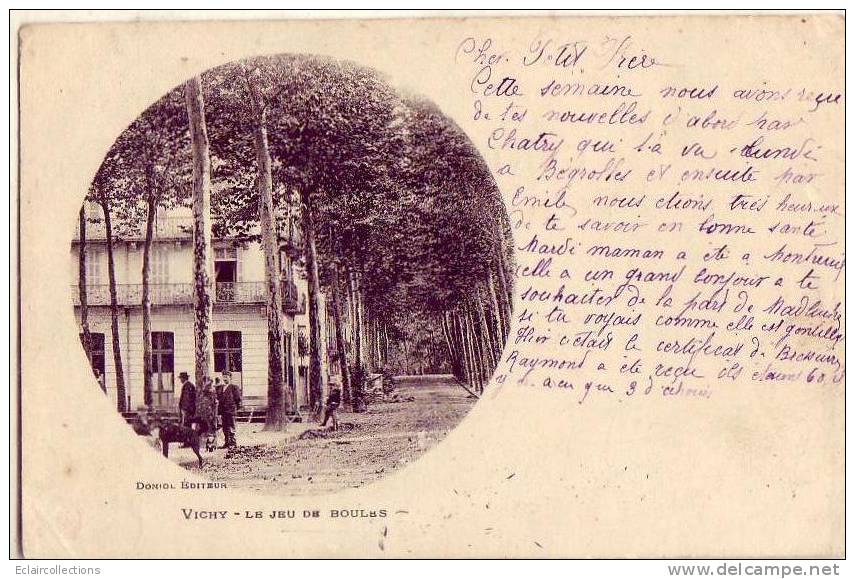 Cher Petit Frère
Cette semaine nous avons reçu
de tes nouvelles d'abord par
Chatry qui t'a vu Lundi
a Bégrolles et ensuite par
Emile nous étions très heureux
de te savoir en bonne santé
Mardi maman a été a Montreuil
elle a un grand bonjour a te
souhaiter de la part de
si tu voyais comme elle est gentille
Hier c'était le certificat de
Raymond a été reçu ils étaient 60 il
y n'a eu que 3 d'échoués
DONIOL ÉDITEUR
VICHY - LE JEU DE BOULES
Eclaircollections
http://www.delcampe.net